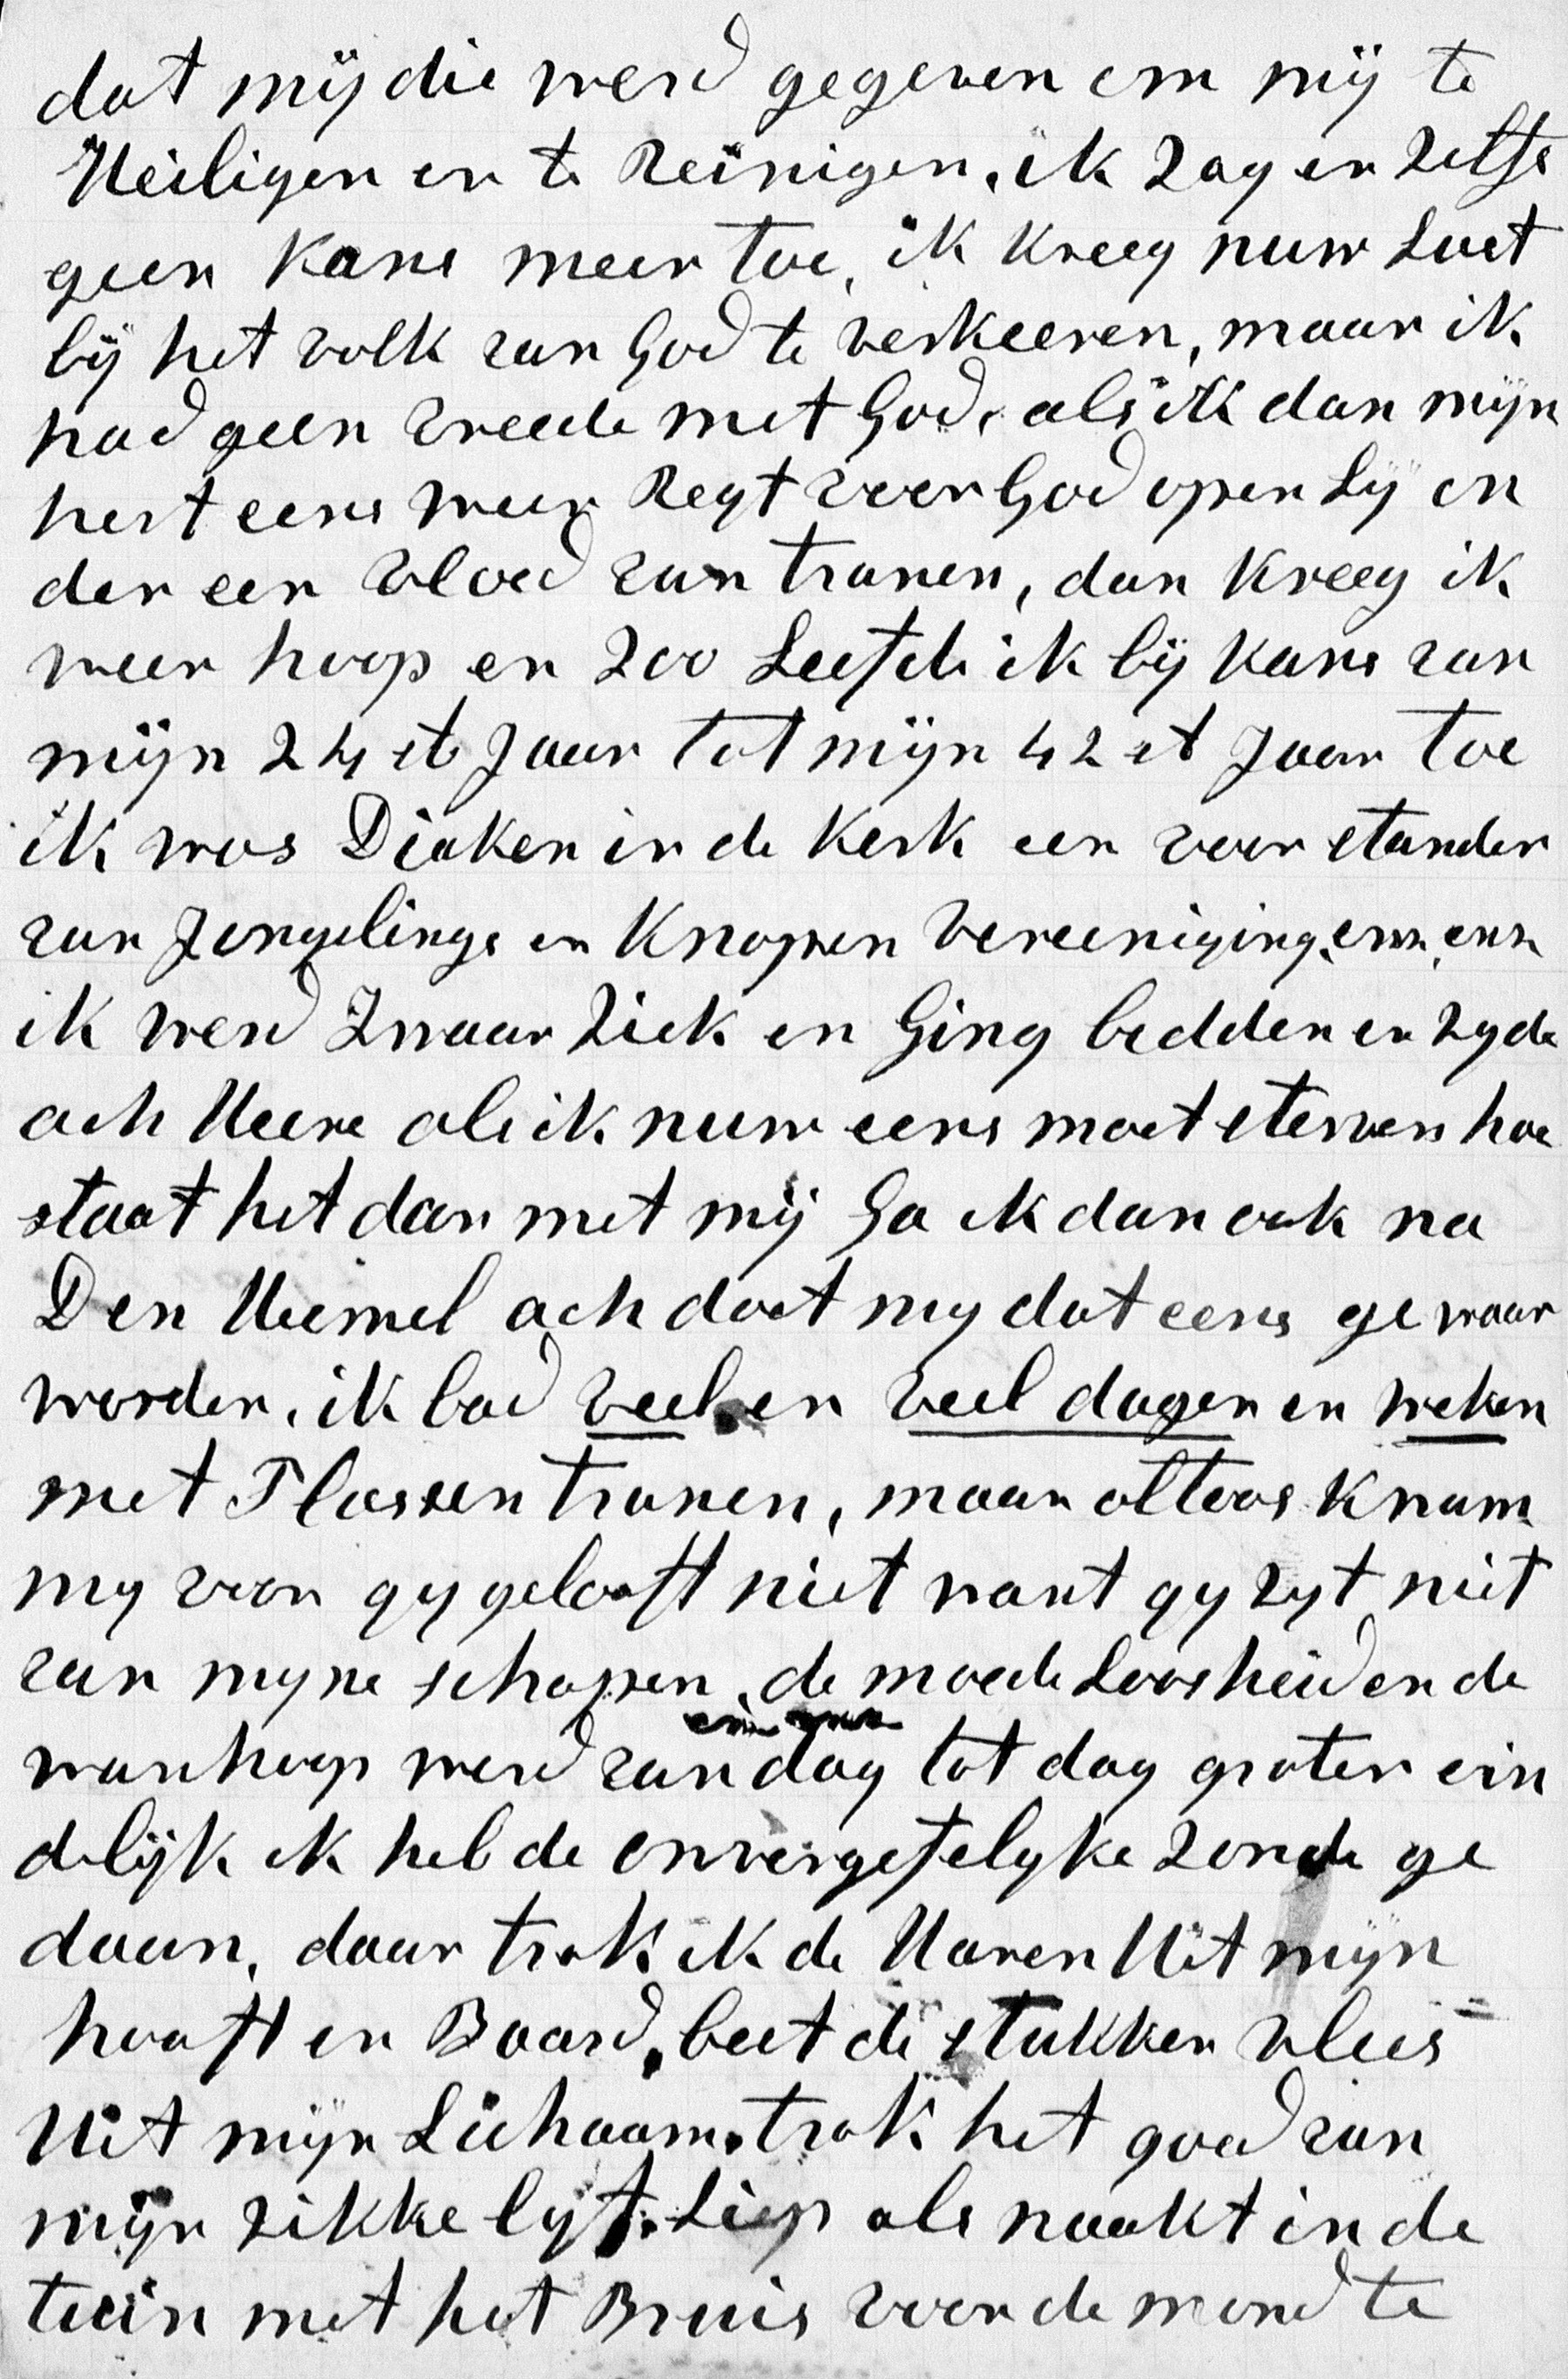 dat mij die werd gegeven om mij te
Heiligen en te Reinigen, ik zag er zelfs
geen kans meer toe, ik kreeg nuw Lust
bij het volk van God te verkeeren, maar ik
had geen vreede met God, als ik dan mijn
hert eens weer Regt voor God open Lij on
der een vloed van tranen, dan kreeg ik
weer hoop en zoo Leefde ik bij kans van
mijn 24 ste Jaar tot mijn 42 st Jaar toe
ik was Diaken in de kerk een voor stander
van Jongelings en Knapen vereeniging, enz, enz
ik werd Zwaar Ziek en Ging bedden en zyde
ach Heere als ik nuw eens moet sterven hoe
staat het dan met mij Ga ik dan ook na
Den Heemel ach doet my dat eens ge waar
worden, ik bad veel en veel dagen en weken
met Plassen tranen, maar altoos kwam
my voor gy gelooft niet want gy zyt niet
van myne schapen, de moedeLoosheid en de
wanhoop werd van dag tot dag groter ein
delijk ik heb de onvergefelyke zonde ge
daan, daar trok ik de Haren Uit mijn
hooft en Baard, beet de stukken vlees
Uit mijn Lichaam, trok het goed van
mijn zikke lyf. Liep als naakt in de
tuin met het Bruis voor de mond te